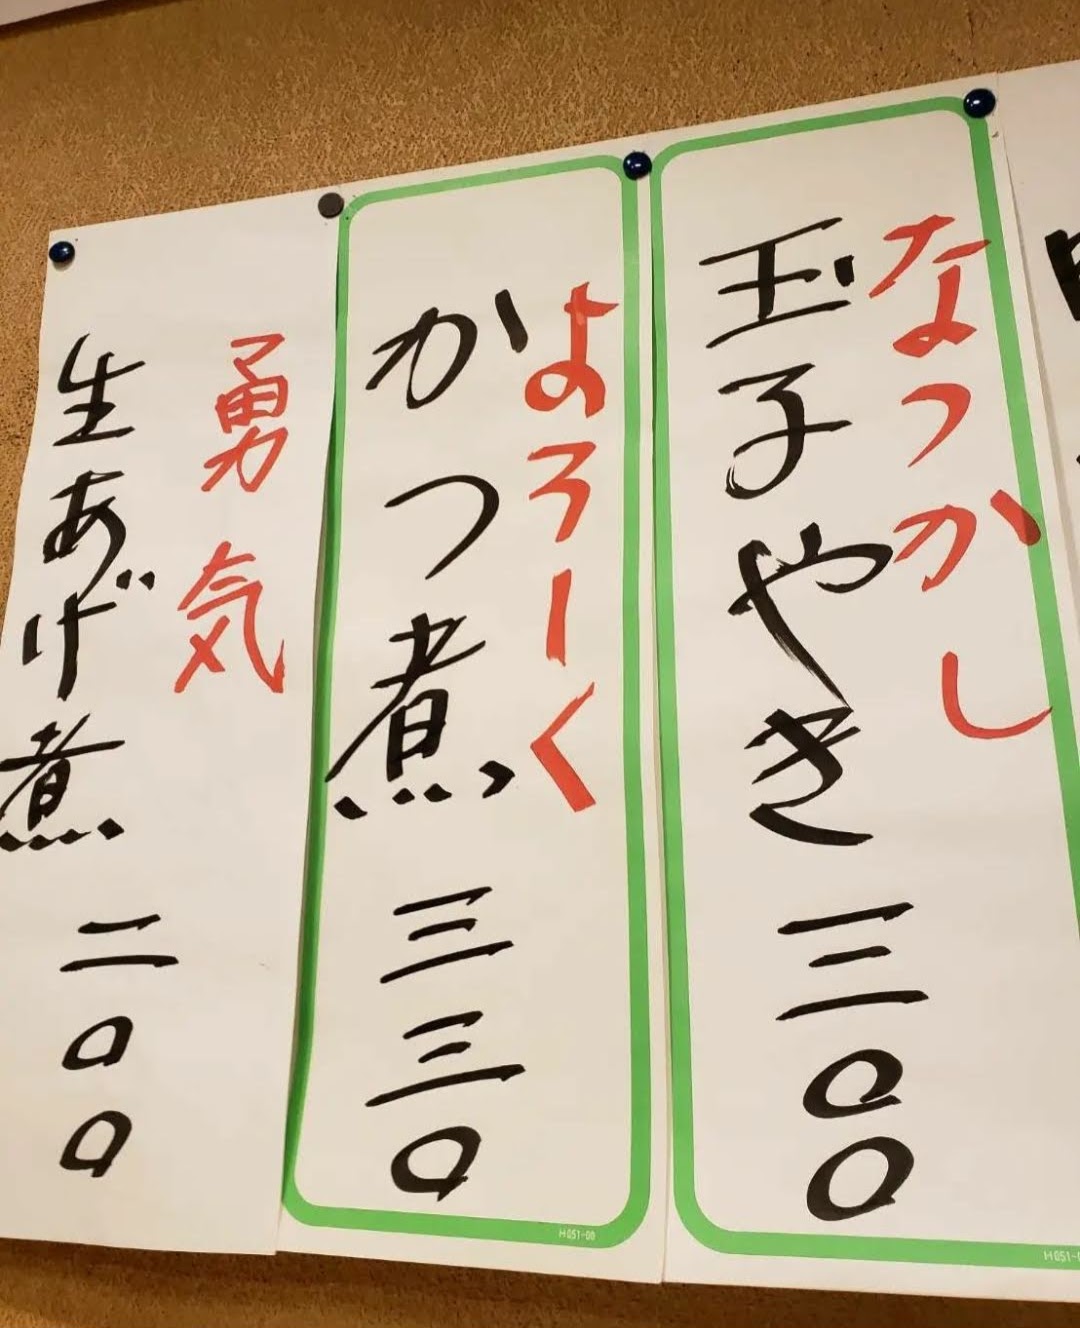 なつかし
玉子やき 三〇〇
よろーく
かつ煮 三三〇
勇気
生あげ煮 二〇〇
H051-00